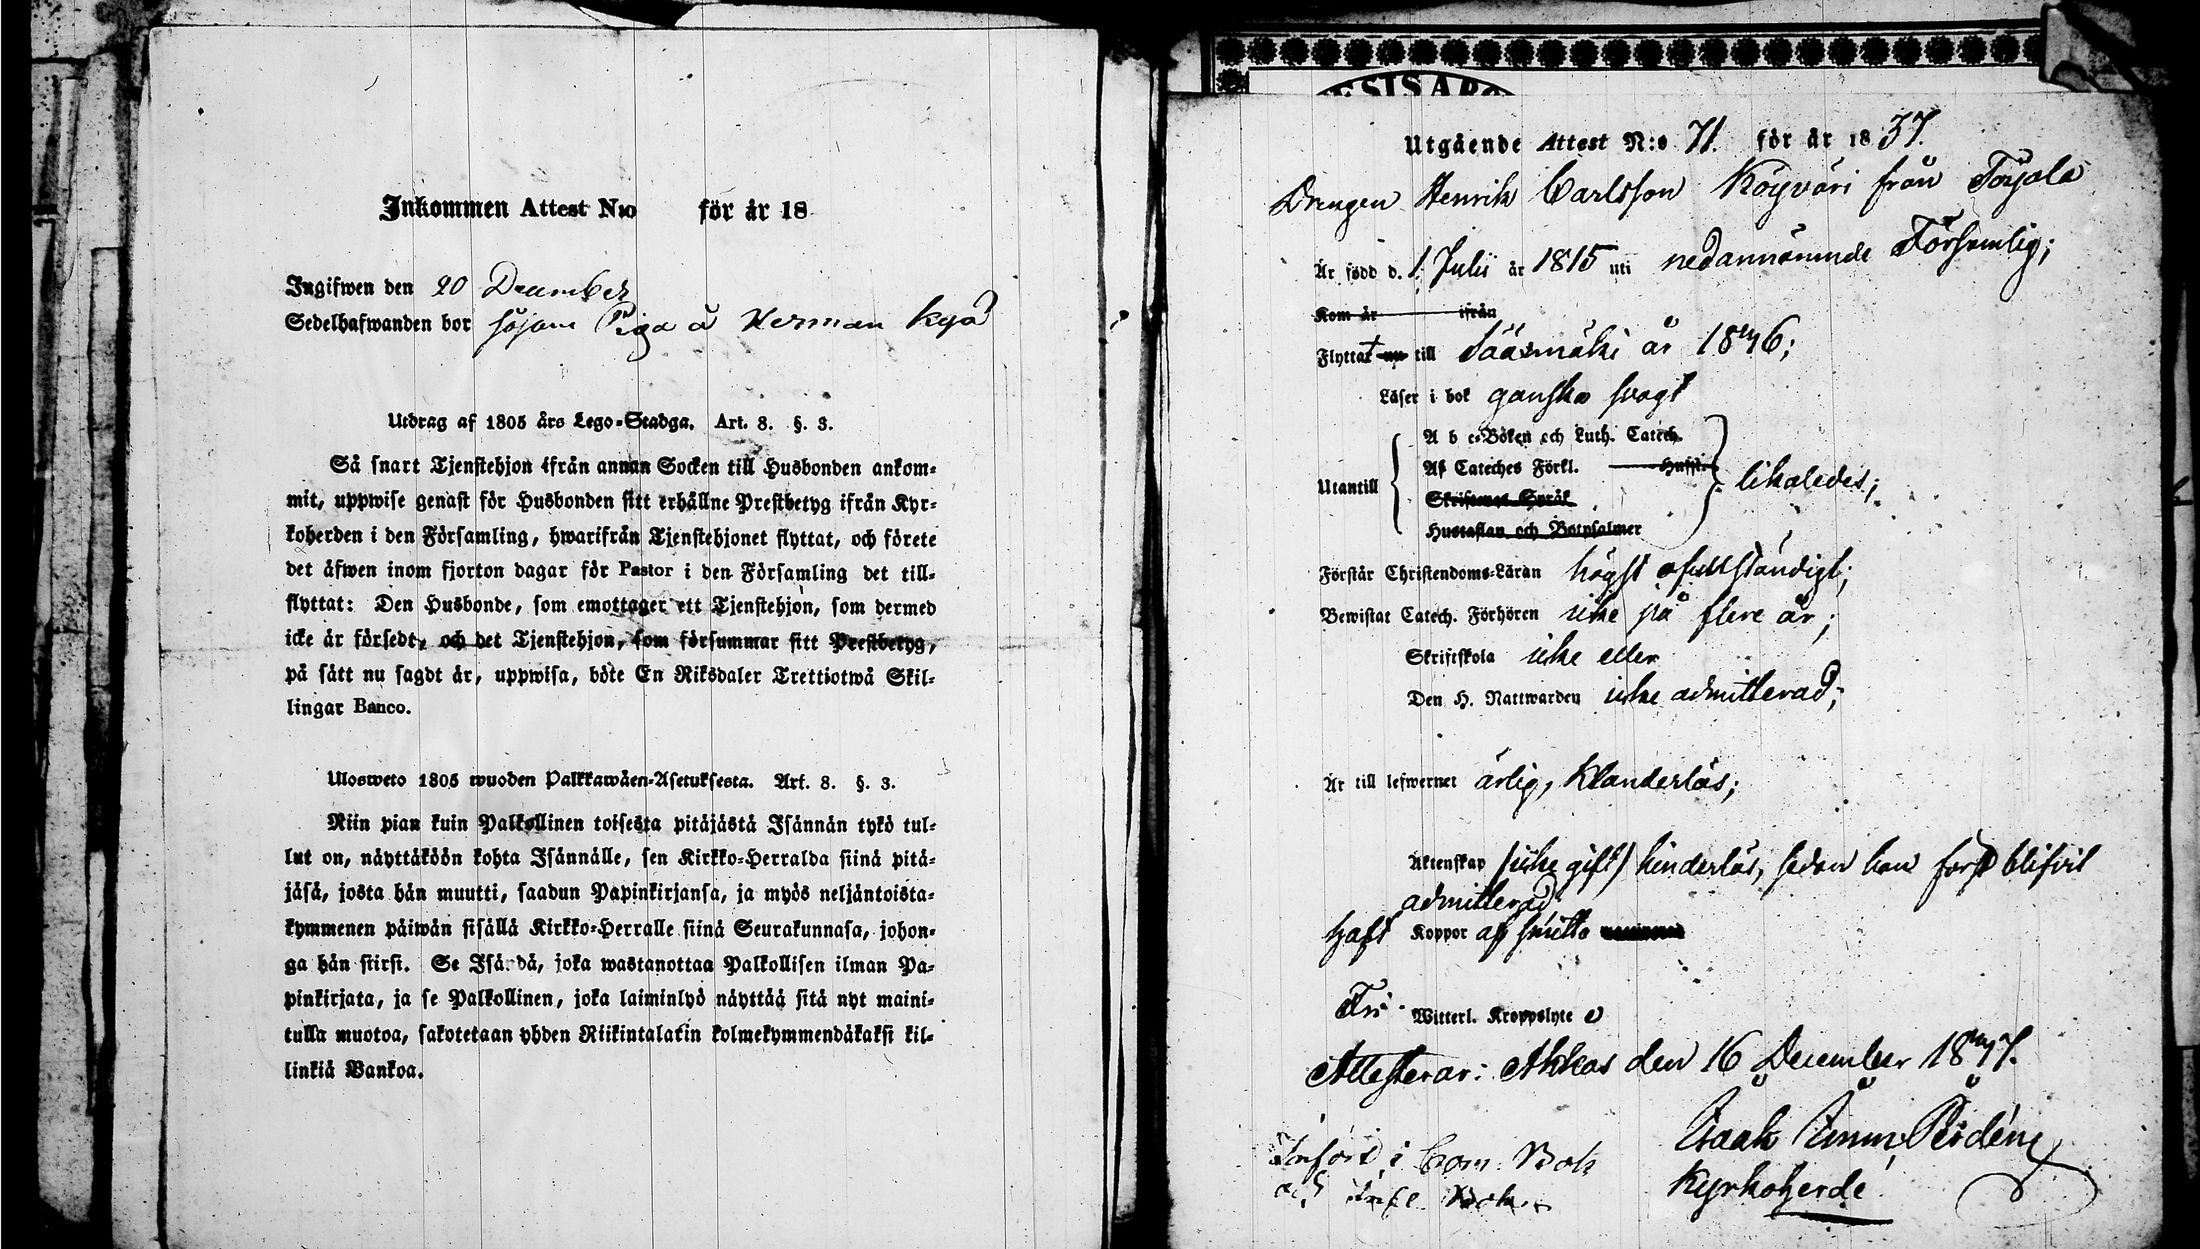 Inkommen Attest N:o för år 18
Ingifwen den 20 December
Sedelhafwanden bor såsom Piga å Herman Kyrö
Utdrag af 1805 års Lego-Stadga. Art. 8. §. 3.
Så snart Tjenstehjon ifrån annan Socken till Husbonden ankom-
mit, uppwise genast för Husbonden sitt erhållne Prestbetyg ifrån Kyr-
koherden i den Församling, hwarifrån Tjenstehjonet flyttat, och förete
det äfwen inom fjorton dagar för Pastor i den Församling det till-
flyttat: Den Husbonde, som emottager ett Tjenstehjon, som dermed
icke är försedt, och det Tjenstehjon, som försummar sitt Prestbetyg,
på sätt nu sagdt är, uppwisa, böte En Riksdaler Trettiotwå Skil-
lingar Banco.
Ulosweto 1805 wuoden Palkkawäen-Asetuksesta. Art. 8. §. 3.
Niin pian kuin Palkollinen toisesta pitäjästä Isännän tykö tul-
lut on, näyttäköön kohta Isännälle, sen Kirkko-Herralda siinä pitä-
jäsä, josta hän muutti, saadun Papinkirjansa, ja myös neljäntoista-
kymmenen päiwän sisällä Kirkko-Herralle siinä Seurakunnasa, johon-
ga hän siirsi. Se Isändä, joka wastanottaa Palkollisen ilman Pa-
pinkirjata, ja se Palkollinen, joka laiminlyö näyttää sitä nyt maini-
tulla muotoa, sakotetaan yhden Riikintalarin kolmekymmendäkaksi kil-
linkiä Bankoa.
ESIS ABO
Utgående Attest N:o 71. för år 1837.
Drengen Henrik Carlsson Köyväri från Toijala
Är född d. 1 Julii år 1815 uti nedannämnde Församlig;
Kom år ifrån
Flyttat nu till Sääxmäki år 1846;
Läser i bok ganska svagt
A b c-Boken och Luth. Catech.
Af Cateches Förkl. Hufst.
Utantill likaledes;
Skriftenes Språk
Hustaflan och Botpsalmer
Förstår Christendoms-Läran högst ofullständigt;
Bewistat Catech. Förhören icke på flere år;
Skriftskola icke eller
Den H. Nattwarden icke admitterad;
Är till lefwernet ärlig, klanderlös;
Äktenskap (icke gift) hinderlös, sedan han först blifvit
admitterad
Haft Koppor af smitta
Fri Witterl. Kroppslyte
Attesterar: Akkas den 16 December 1847.
Isaak Emm. Peldén
Kyrkoherde
Införd i Com. Bok
och Infl. Bok